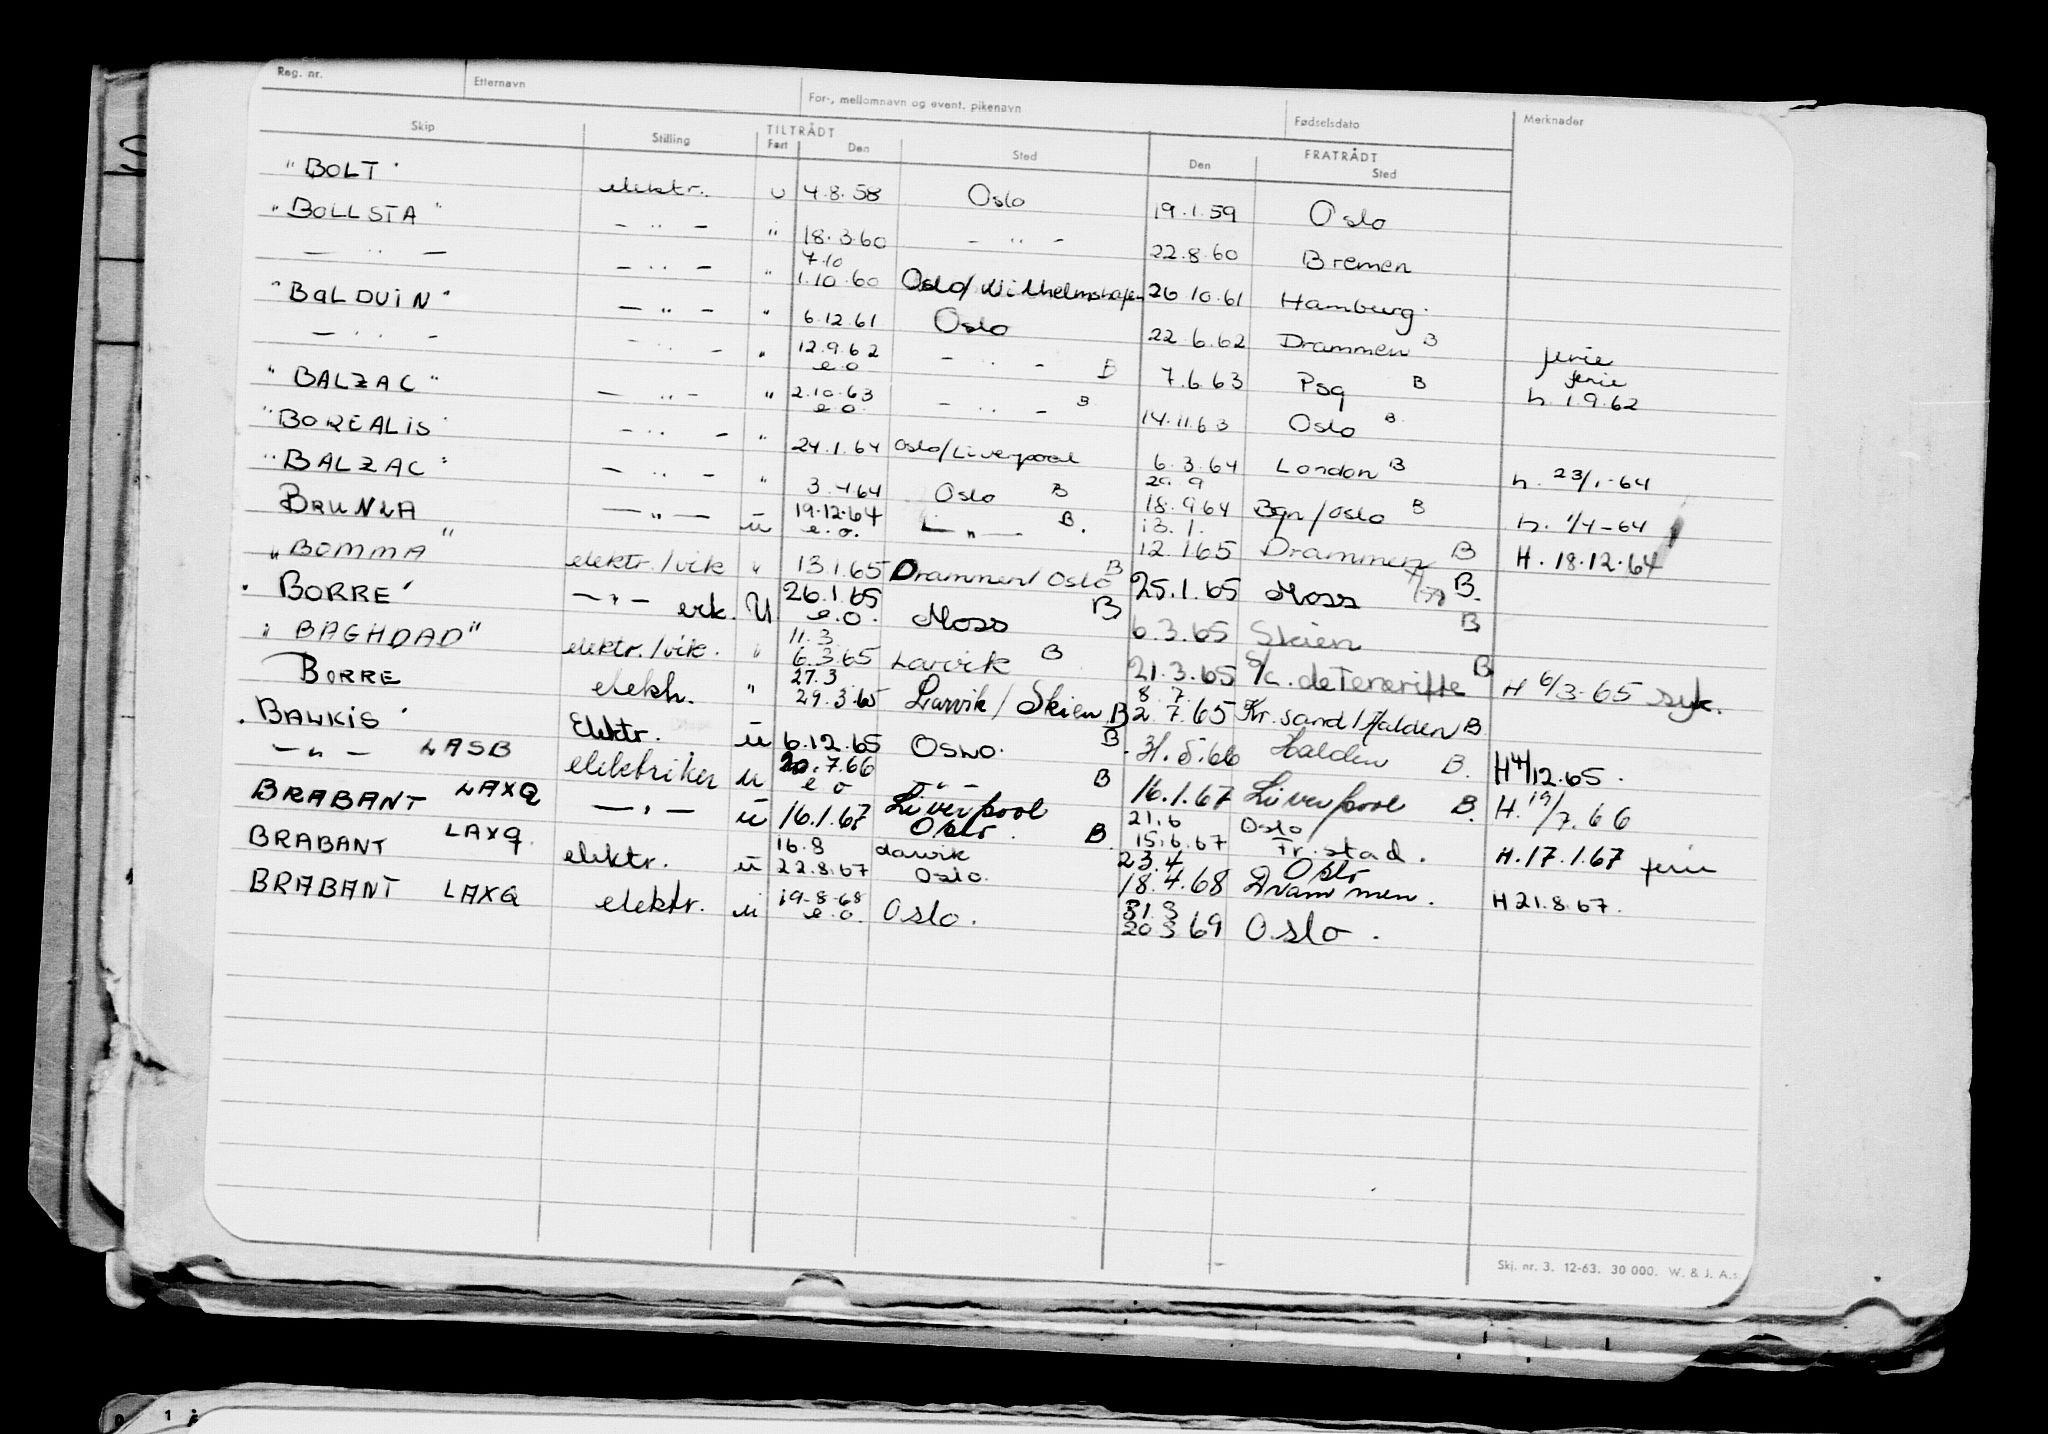 Reg. nr. Etternavn For-, mellomnavn og event. pikenavn Fødselsdato Merknader
Skip Stilling TILTRÅDT Fart Den Sted FRATRÅDT Den Sted
"BOLT" elektr. u 4.8.58 Oslo 19.1.59 Oslo
"BOLLSTA" — " — " 18.3.60 — " — 22.8.60 Bremen
— " — — " — " 7.10 1.10.60 Oslo/Wilhelmshafen 26.10.61 Hamburg.
"BALDUIN" — " — " 6.12.61 Oslo 22.6.62 Drammen B ferie
— " — — " — " 12.9.62 e.o — " — B 7.6.63 Psg B ferie h. 1.9.62
"BALZAC" — " — " 2.10.63 e.o. — " — B 14.11.63 Oslo B.
"BOREALIS" — " — " 24.1.64 Oslo/Liverpool 6.3.64 London B h. 23/1-64
"BALZAC" — " — " 3.4.64 Oslo B 29.9 18.9.64 Bgn/Oslo B h. 1/4-64
BRUNLA — " — u 19.12.64 e.o. — " — B. 13.1. 12.1.65 Drammen B H. 18.12.64
"BOMMA" elektr./vik " 13.1.65 Drammen/Oslo B 25.1.65 Moss B.
"BORRE" — " — vik. U 26.1.65 e.o. Moss B 6.3.65 Skien B
"BAGHDAD" elektr./vik. " 11.3 6.3.65 Larvik B 21.3.65 S/C. de Tenerifte B H 6/3-65 syk.
BORRE elektr. " 27.3 29.3.65 Larvik/Skien B 8.7. 2.7.65 Kr.sand/Halden B
"BALKIS" Elektr. u 6.12.65 Oslo. B. 31.5.66 Halden B. H 4/12.65.
— " — LASB elektriker u 20.7.66 e o — " — B 16.1.67 Liverpool B. H. 19/7.66
BRABANT LAXQ — " — u 16.1.67 Liverpool Oslo. B. 21.6 15.6.67 Oslo Fr.stad. H. 17.1.67 ferie
BRABANT LAXQ. elektr. u 16.8 22.8.67 Larvik Oslo. 23.4 18.4.68 Oslo Drammen. H 21.8.67.
BRABANT LAXQ elektr. u 19.8.68 e.o. Oslo. 31.3 20 3 69 Oslo.
Skj. nr. 3. 12-63. 30 000. W. & J. A.s